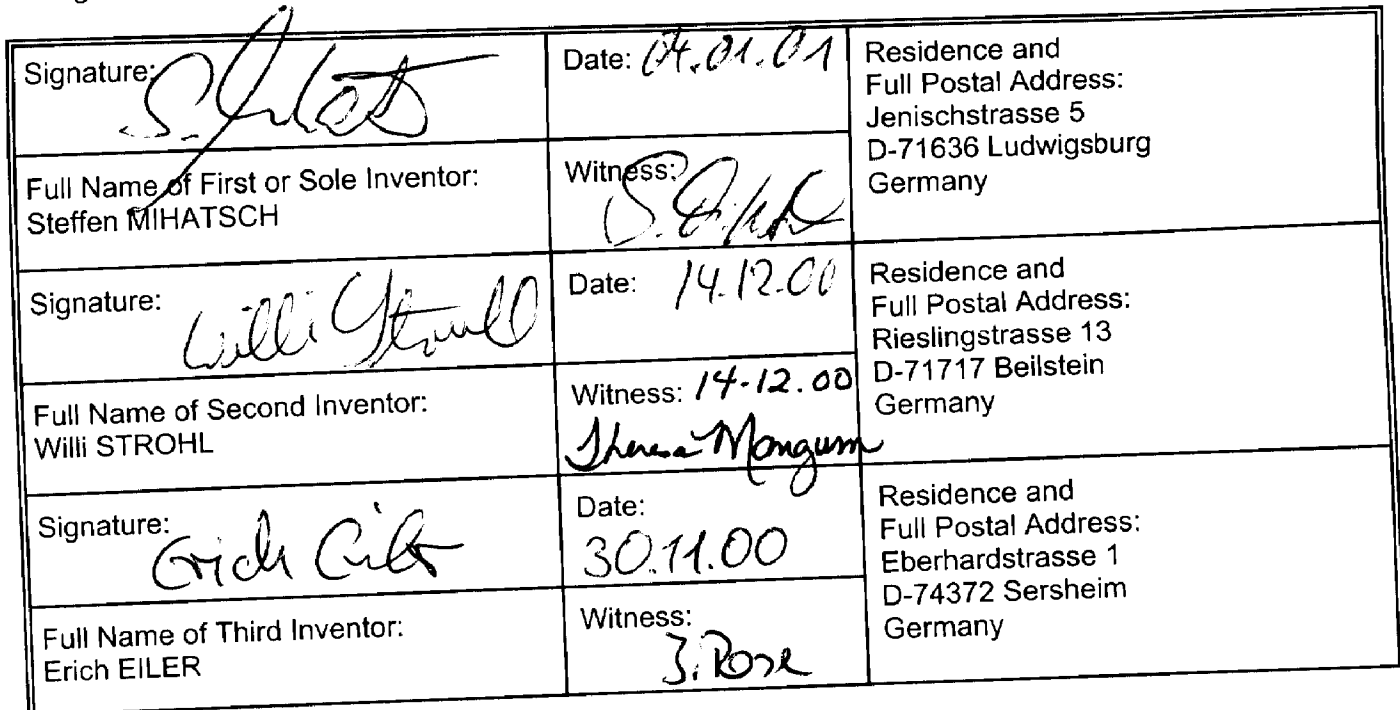 Signature:
Date: 04.01.01
Residence and
Full Postal Address:
Jenischstrasse 5
D-71636 Ludwigsburg
Germany
Full Name of First or Sole Inventor:
Steffen MIHATSCH
Witness:
Signature: Willi Strohl
Date: 14.12.00
Residence and
Full Postal Address:
Rieslingstrasse 13
D-71717 Beilstein
Germany
Full Name of Second Inventor:
Willi STROHL
Witness: 14-12.00
Theresa Mongum
Signature: Erich Eiler
Date:
30.11.00
Residence and
Full Postal Address:
Eberhardstrasse 1
D-74372 Sersheim
Germany
Full Name of Third Inventor:
Erich EILER
Witness:
J. Rose